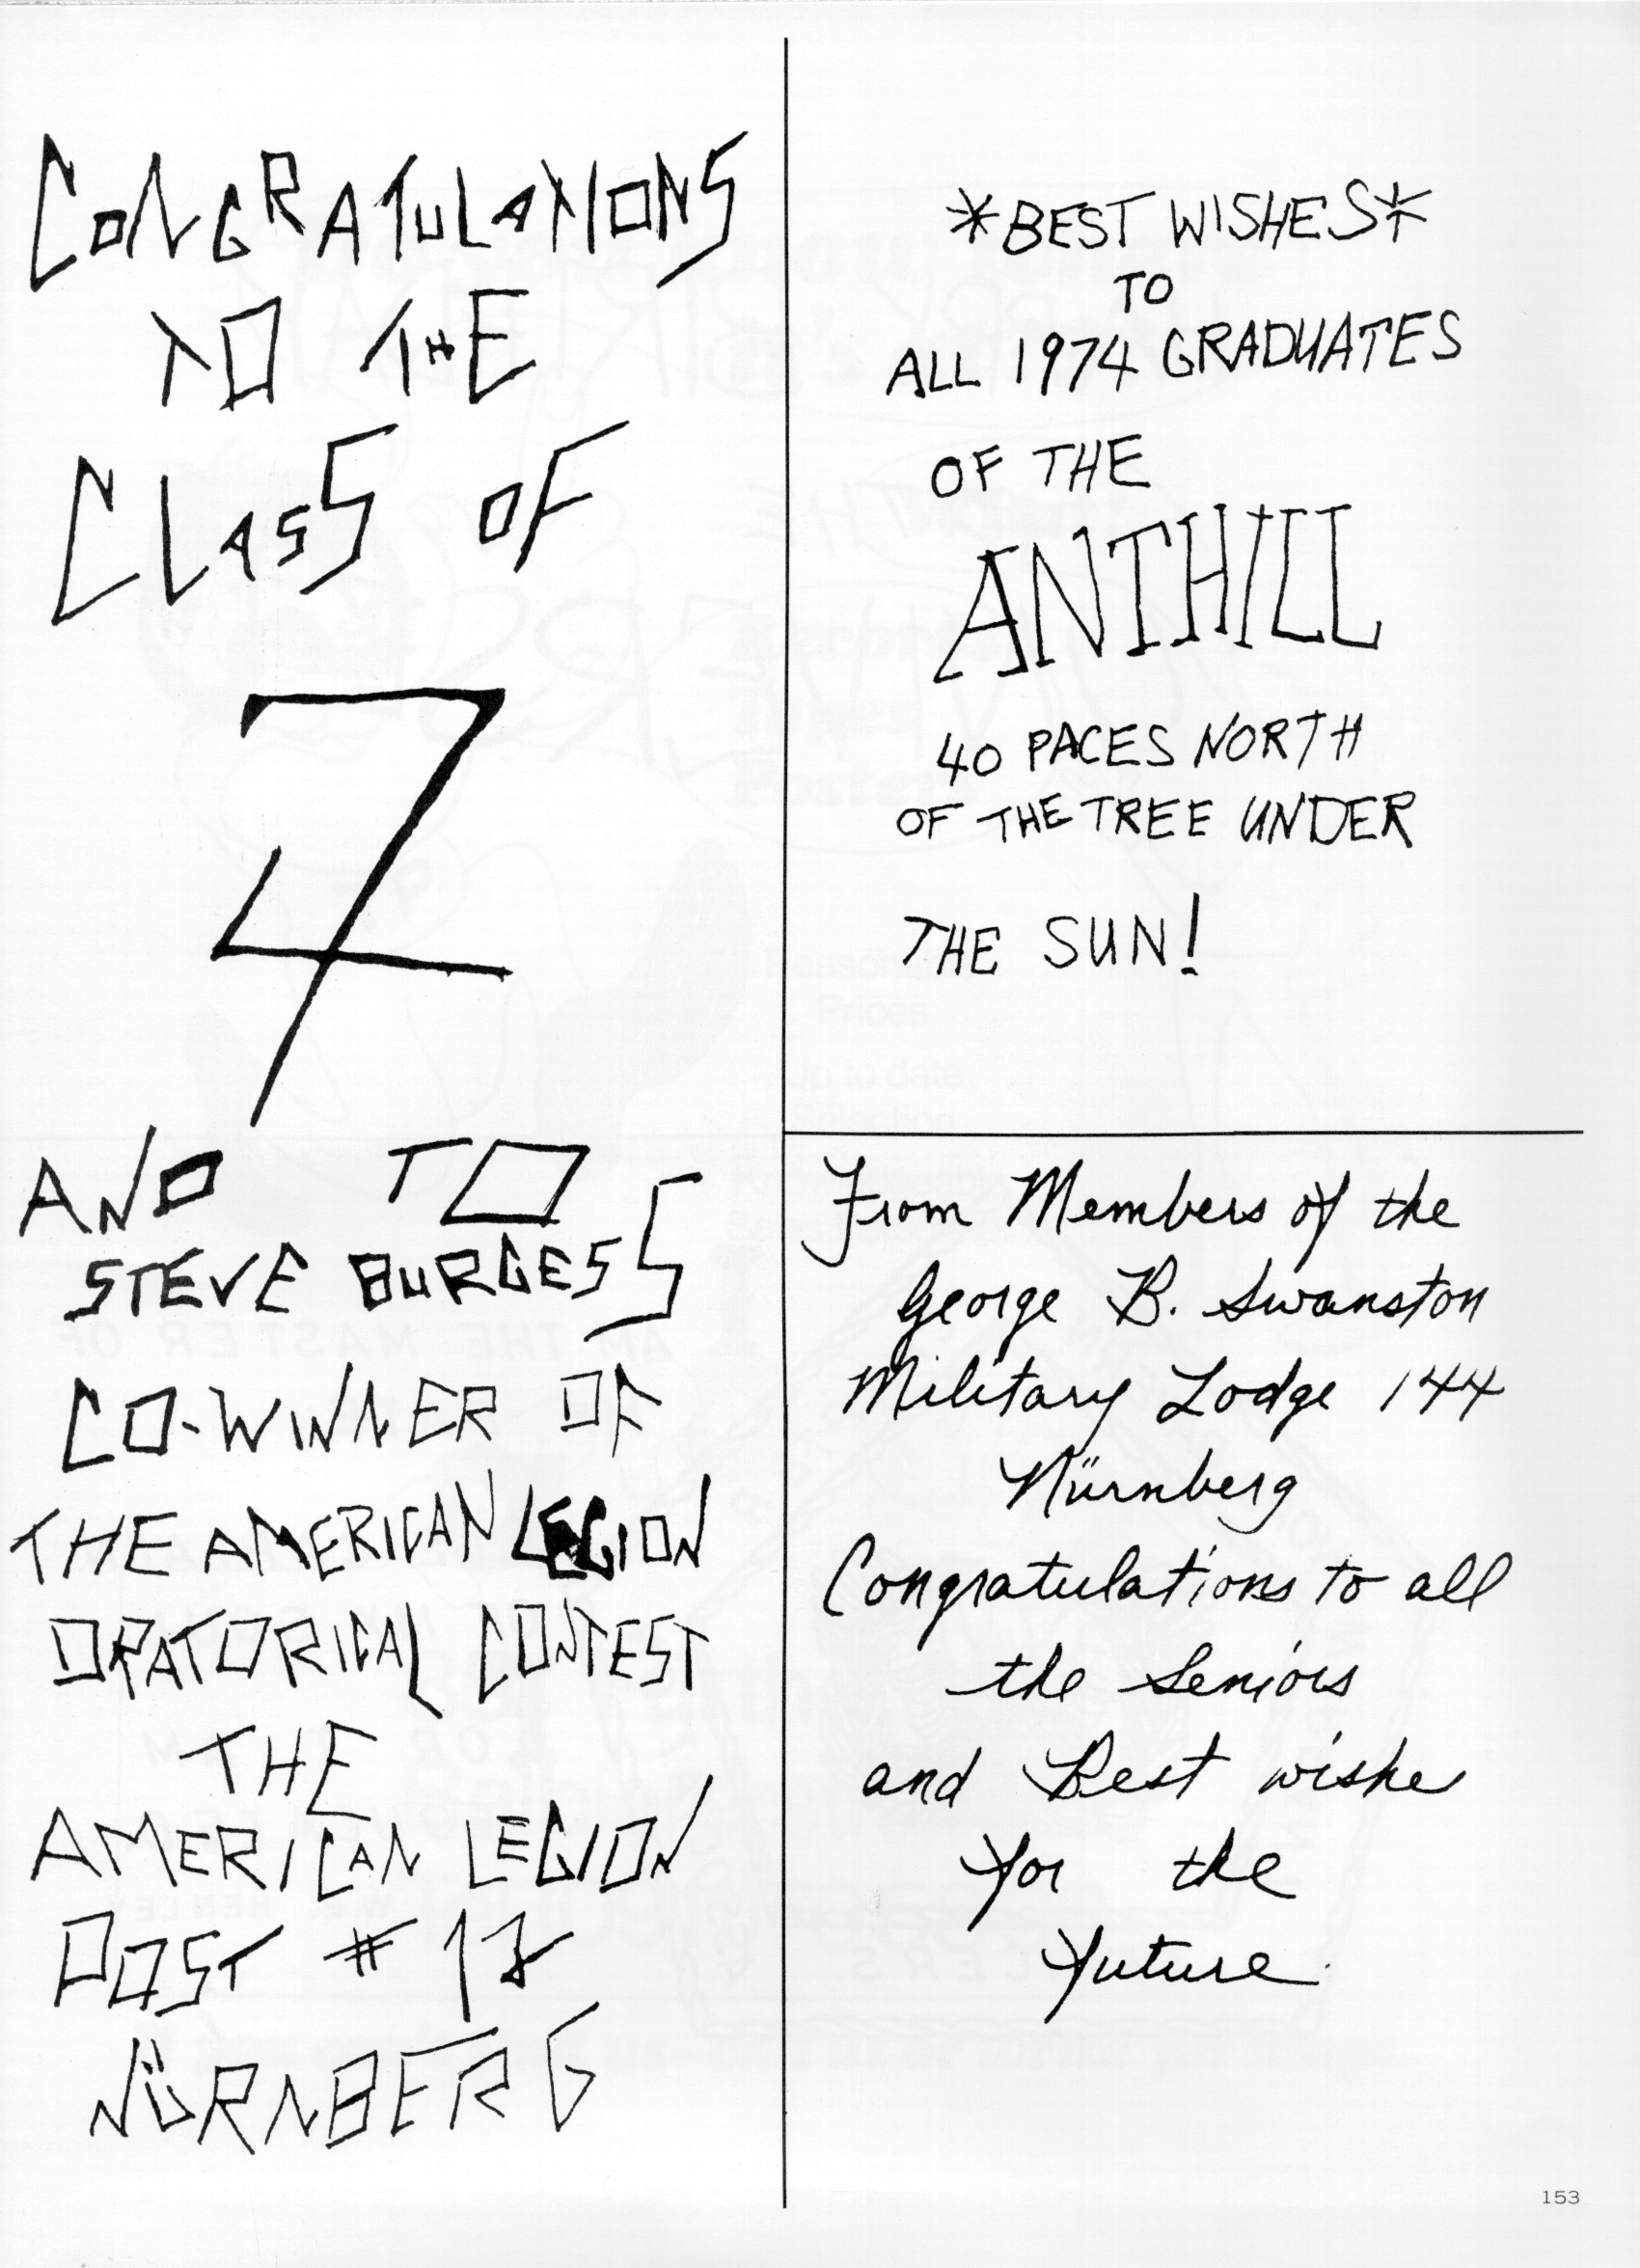 CONGRATULATIONS
TO THE
CLASS OF
74
AND TO
STEVE BURGESS
CO-WINNER OF
THE AMERICAN LEGION
ORATORICAL CONTEST
THE
AMERICAN LEGION
POST #
NÜRNBERG
*BEST WISHES*
TO
ALL 1974 GRADUATES
OF THE
ANTHILL
40 PACES NORTH
OF THE TREE UNDER
THE SUN!
From Members of the
George B. Swanston
Military Lodge 144
Nürnberg
Congratulations to all
the Seniors
and Best wishe
for the
future.
153